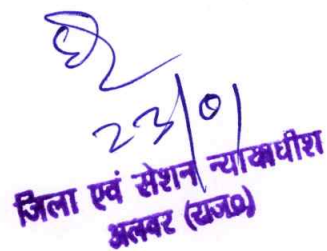 23/01
जिला एवं सेशन न्यायाधीश
अलवर (राज०)